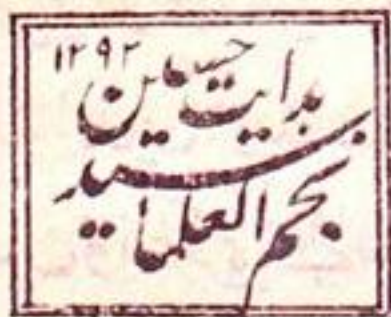 ۱۲۹۲
ہدایت حسین
سید
نجم العلما